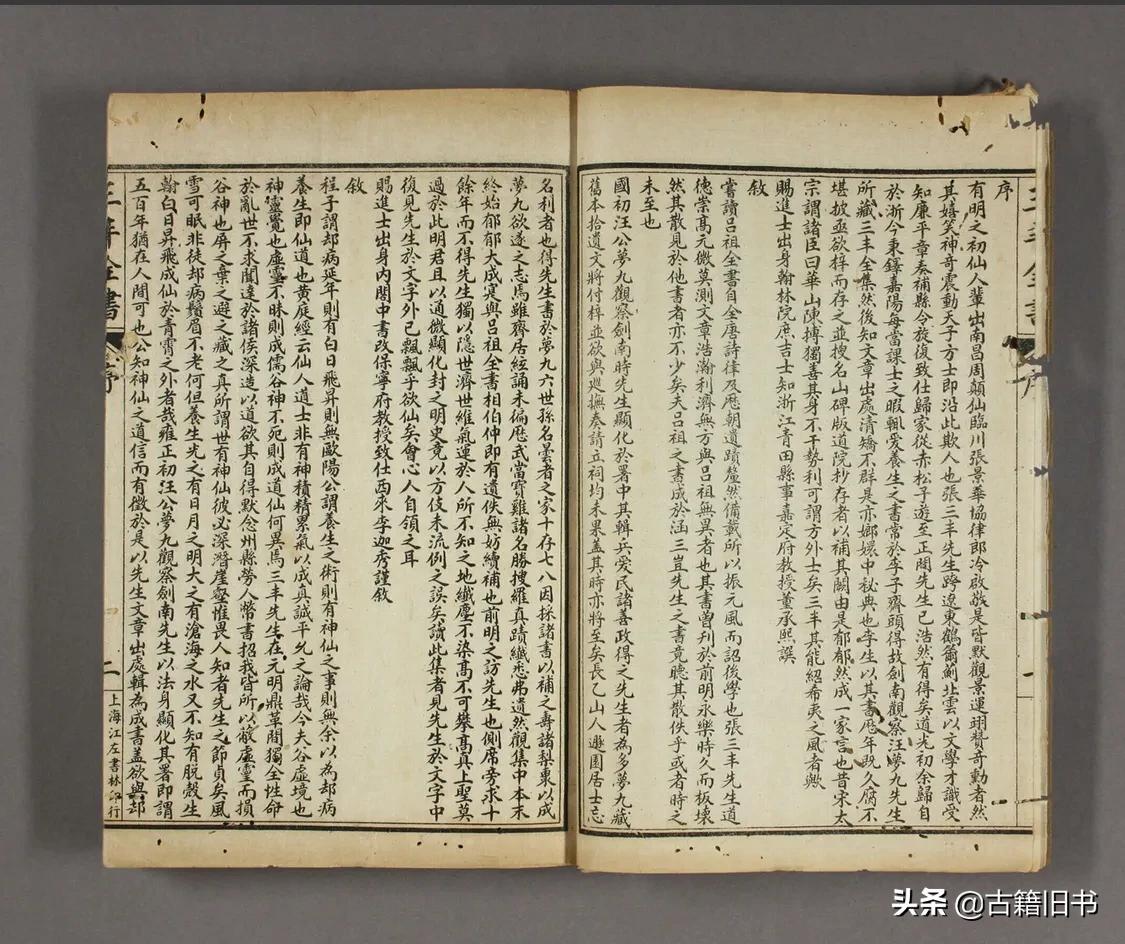 序
有明之初仙人輩出南昌周顛仙臨川張景華協律郎冷啟敬是皆默觀景運翊贊奇勳者然
其嬉笑神奇震動天子方士即沿此欺人也張三丰先生跨遼東鶴籋薊北雲以文學才識受
知廉平章奏補縣令旋復致仕歸家從赤松子遊至正間先生已浩然有得矣道光初余歸自
於浙今秉鐸嘉陽每當課士之暇輒愛養生之書常於李子齋頭得故劍南觀察汪夢九先生
所藏三丰全集然後知文章出處清矯不群是亦嫏嬛中秘典也李生以其書歷年既久腐不
堪披亟欲梓而存之並搜名山碑版道院抄存者以補其闕由是郁郁然成一家言也昔宋太
宗謂諸臣曰華山陳摶獨善其身不干勢利可謂方外士矣三丰其能紹希夷之風者歟
賜進士出身翰林院庶吉士知浙江青田縣事嘉定府教授董承熙譔
敘
嘗讀呂祖全書自全唐詩律及歷朝遺蹟釐然備載所以振元風而詔後學也張三丰先生道
德崇高元微莫測文章浩瀚利濟無方與呂祖無異者也其書曾刊於前明永樂時久而板壞
然其散見於他書者亦不少矣夫呂祖之書成於涵三豈先生之書竟聽其散佚乎或者時之
未至也
國初汪公夢九觀察劍南時先生顯化於署中其輯兵愛民諸善政得之先生者為多夢九藏
舊本拾遺文將付梓並欲與巡撫奏請立祠均未果蓋其時亦將至矣長乙山人遯園居士忘
名利者也得先生書於夢九六世孫名曇者之家十存七八因採諸書以補之壽諸梨棗以成
夢九欲遂之志焉雖齋居經誦未徧歷武當寶雞諸名勝搜羅真蹟纖悉弗遺然觀集中本末
終始郁郁大成寔與呂祖全書相伯仲即有遺佚無妨續補也前明之訪先生也側席旁求十
餘年而不得先生獨以隱世濟世維氣運於人所不知之地纖塵不染高不可攀高真上聖莫
過於此明君且以通微顯化封之明史竟以方伎末流例之誤矣讀此集者見先生於文字中
復見先生於文字外已飄飄乎欲仙矣會心人自領之耳
賜進士出身內閣中書改保寧府教授致仕西來李迦秀謹敘
敘
程子謂却病延年則有白日飛昇則無歐陽公謂養生之術則有神仙之事則無余以為却病
養生即仙道也黃庭經云仙人道士非有神積精累氣以成真誠平允之論哉今夫谷虛境也
神靈覺也虛靈不昧則成儒谷神不死則成道仙何異焉三丰先生在元明鼎革間獨全性命
於亂世不求聞達於諸侯深造以道欲其自得默念州縣勞人幣書招我皆所以敝虛靈而損
谷神也屏之棄之避之藏之真所謂世有神仙彼必深潛崖壑惟畏人知者先生之節貞矣風
雪可眠非徒却病鬚眉不老何但養生先之有日月之明大之有滄海之水又不知有脫殼生
翰白日昇飛成仙於青霄之外者哉雍正初汪公夢九觀察劍南先生以法身顯化其署即謂
五百年猶在人間可也公知神仙之道信而有徵於是以先生文章出處輯為成書蓋欲與却
三丰全書
序
二
上海江左書林印行
头条 @古籍旧书